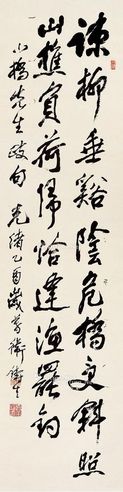 疎柳垂谿陰危橋交斜照
山樵負荷歸恰逢漁罷釣
小橋先生政句 光緒乙酉歲